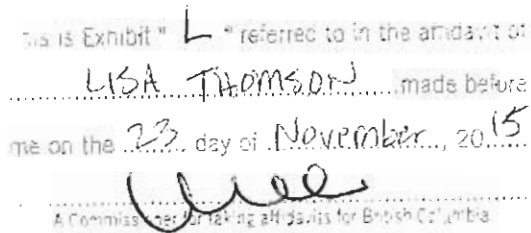 This is Exhibit " L " referred to in the affidavit of
LISA THOMSON made before
me on the 23 day of November, 2015
A Commissioner for taking affidavits for British Columbia